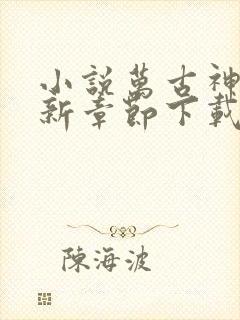 小說萬古神
新章節下載
陳海波